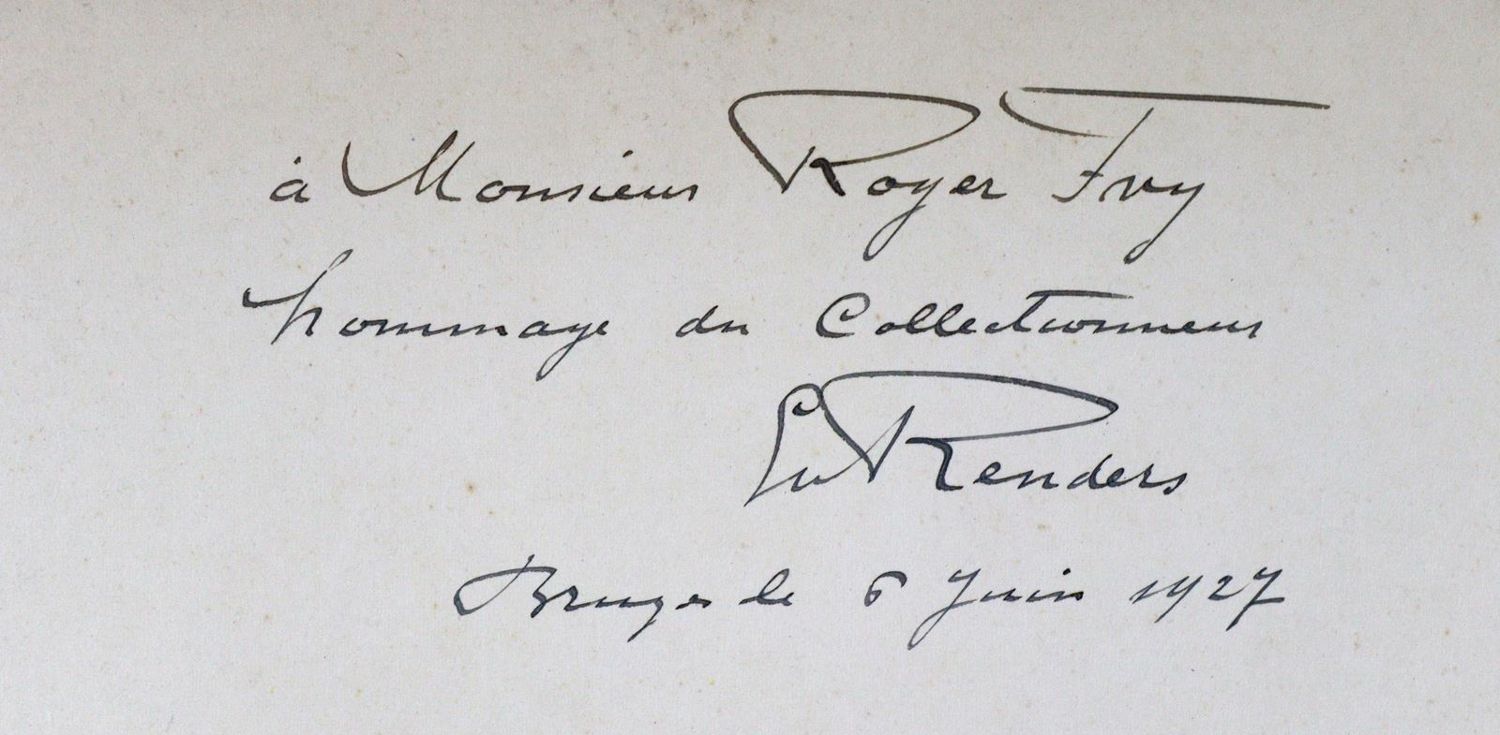 à Monsieur Roger Fry
hommage du Collectionneur
Em Renders
Bruges le 6 Juin 1927